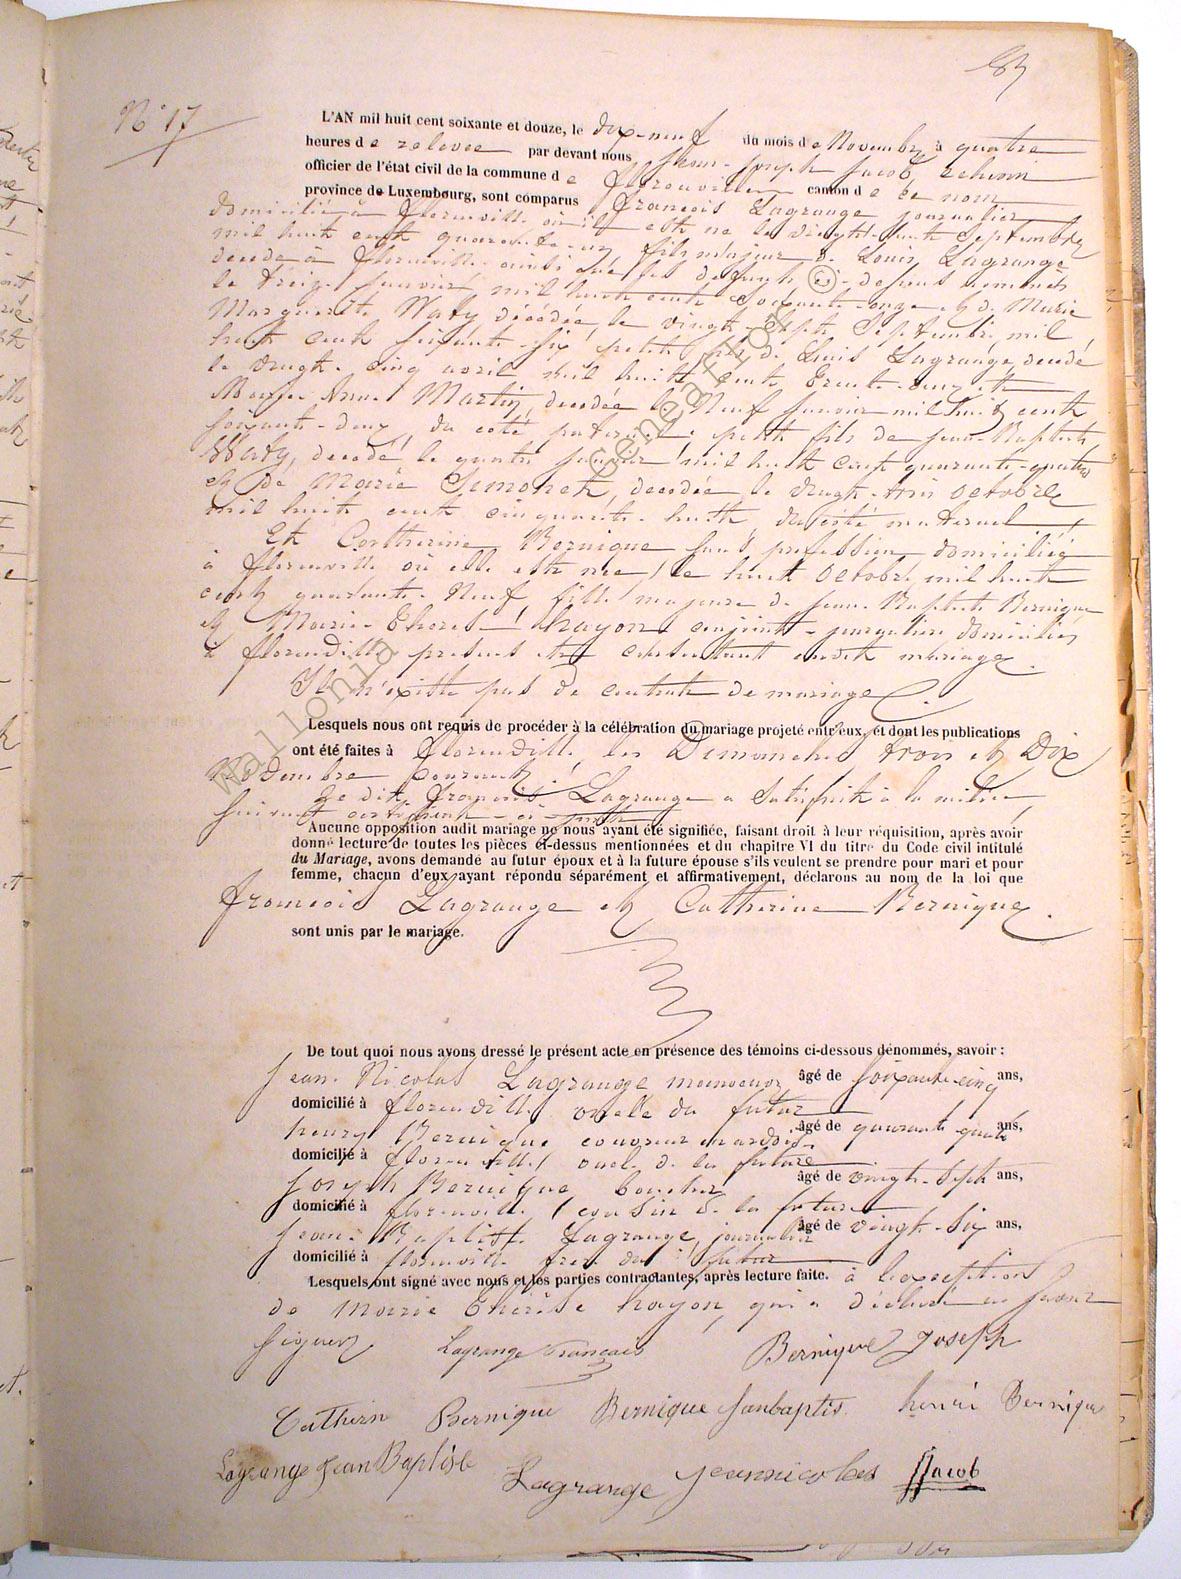 83
N° 17
L'AN mil huit cent soixante et douze, le dix-neuf du mois de Novembre à quatre
heures de relevée par devant nous Jean-Joseph Jacob, échevin
officier de l'état civil de la commune de florenville canton de ce nom
province de Luxembourg, sont comparus François Lagrange journalier
domicilié à florenville où il est né le vingt-huit Septembre
mil huit cent quarante-un fils majeur de Louis Lagrange
décédé à florenville ainsi que les défunts ci-dessous nommés
le treize Janvier mil huit cent soixante-onze et de Marie
Marguerite Waty décédée, le vingt-sept Septembre, mil
huit cent soixante-six petit fils de Louis Lagrange, décédé
le vingt-cinq avril mil huit cent trente-onze et
Marie Anne Martin décédée le Neuf Janvier mil huit cent
soixante-deux, du côté paternel; petit fils de Jean-Baptiste
Waty, décédé le quatre Janvier mil huit cent quarante-quatre
et de Marie Simonet, décédée le vingt-trois Octobre
mil huit cent cinquante-huit, du côté maternel
Et Catherine Bernique sans profession domiciliée
à florenville où elle est née, le huit Octobre mil huit
cent quarante-Neuf fille majeure de Jean-Baptiste Bernique
et Marie-Thérèse hayon conjoints-journaliers domiciliés
à florenville présents et consentant audit mariage.
Il n'existe pas de contrat de mariage.
Lesquels nous ont requis de procéder à la célébration du mariage projeté entr'eux, et dont les publications
ont été faites à florenville, les Dimanches trois et Dix
Novembre courant.
Le dit François Lagrange a satisfait à la milice
suivant certificat ci-joint
Aucune opposition audit mariage ne nous ayant été signifiée, faisant droit à leur réquisition, après avoir
donné lecture de toutes les pièces ci-dessus mentionnées et du chapitre VI du titre du Code civil intitulé
du Mariage, avons demandé au futur époux et à la future épouse s'ils veulent se prendre pour mari et pour
femme, chacun d'eux ayant répondu séparément et affirmativement, déclarons au nom de la loi que
françois Lagrange et Catherine Bernique.
sont unis par le mariage.
De tout quoi nous avons dressé le présent acte en présence des témoins ci-dessous dénommés, savoir :
Jean-Nicolas Lagrange manoeuvre âgé de soixante-cinq ans,
domicilié à florenville oncle du futur
henry Bernique couvreur en ardois. âgé de quarante quatre ans,
domicilié à florenville oncle de la future
Joseph Bernique, boucher âgé de vingt-sept ans,
domicilié à florenville cousin de la future
Jean-Baptiste Lagrange, journalier âgé de vingt-six ans,
domicilié à florenville frère du futur
Lesquels ont signé avec nous et les parties contractantes, après lecture faite. à l'exception
de Marie Thérèse hayon, qui a déclaré ne savoir
signer
Lagrange Francois Bernique Joseph
Catherin Bernique Bernique Janbaptis henri Bernique
Lagrange Jean Baptise Lagrange jeannicolas JJacob
wallonia © cencafior